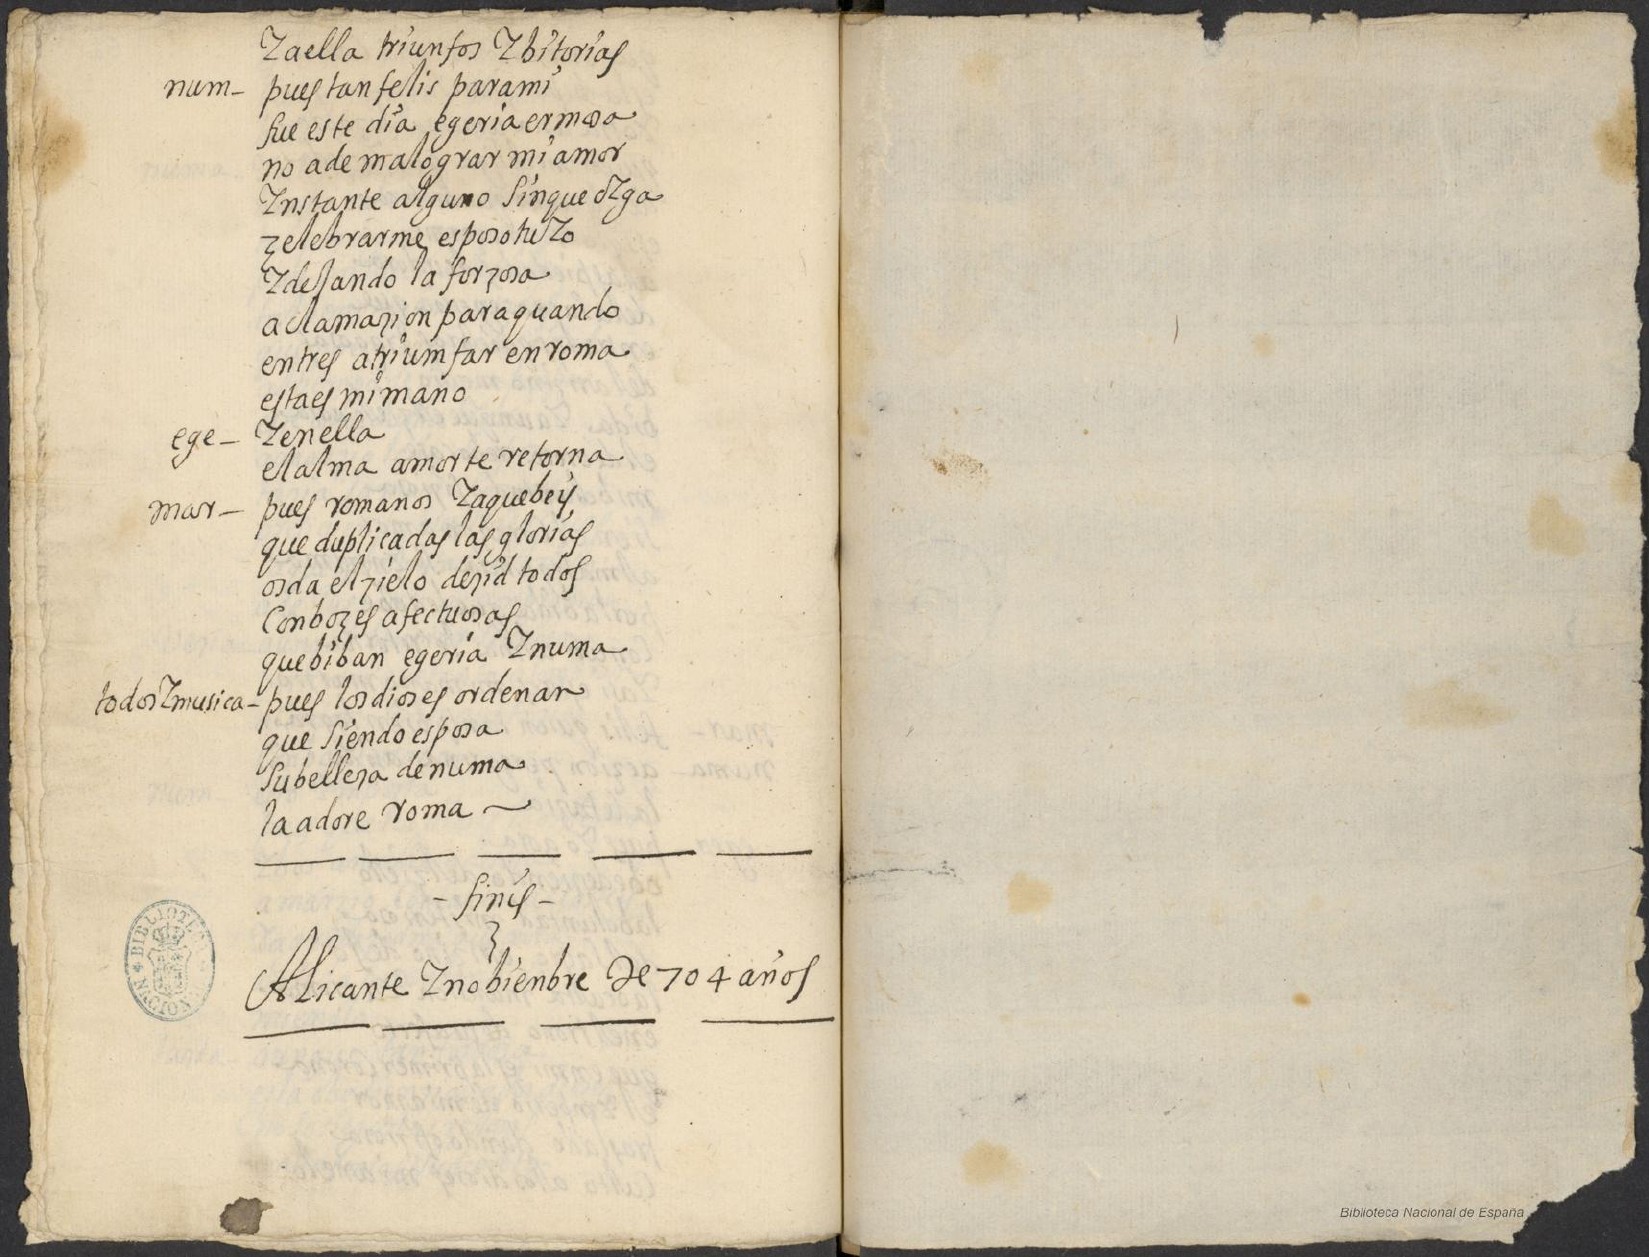 Y a ella triunfos Y bitorias
num- pues tan felis para mi
fue este dia egeria ermosa
no a de malograr mi amor
Ynstante alguno sin que oYga
zelebrarme esposo tuYo
Y desando la forzosa
aclamazion para quando
entres a triumfar en roma
esta es mi mano
ege- Y en ella
el alma amor te retorna
mar- pues romanos Ya que beis
que duplicadas las glorias
os da el zielo dezid todos
Con bozes afectuosas
que biban egeria Y numa
todos Y musica- pues los dioses ordenan
que siendo esposa
su belleza de numa
la adore roma
- finis -
Alicante Y nobienbre de 704 años
BIBLIOTECA NACIONAL
Biblioteca Nacional de España